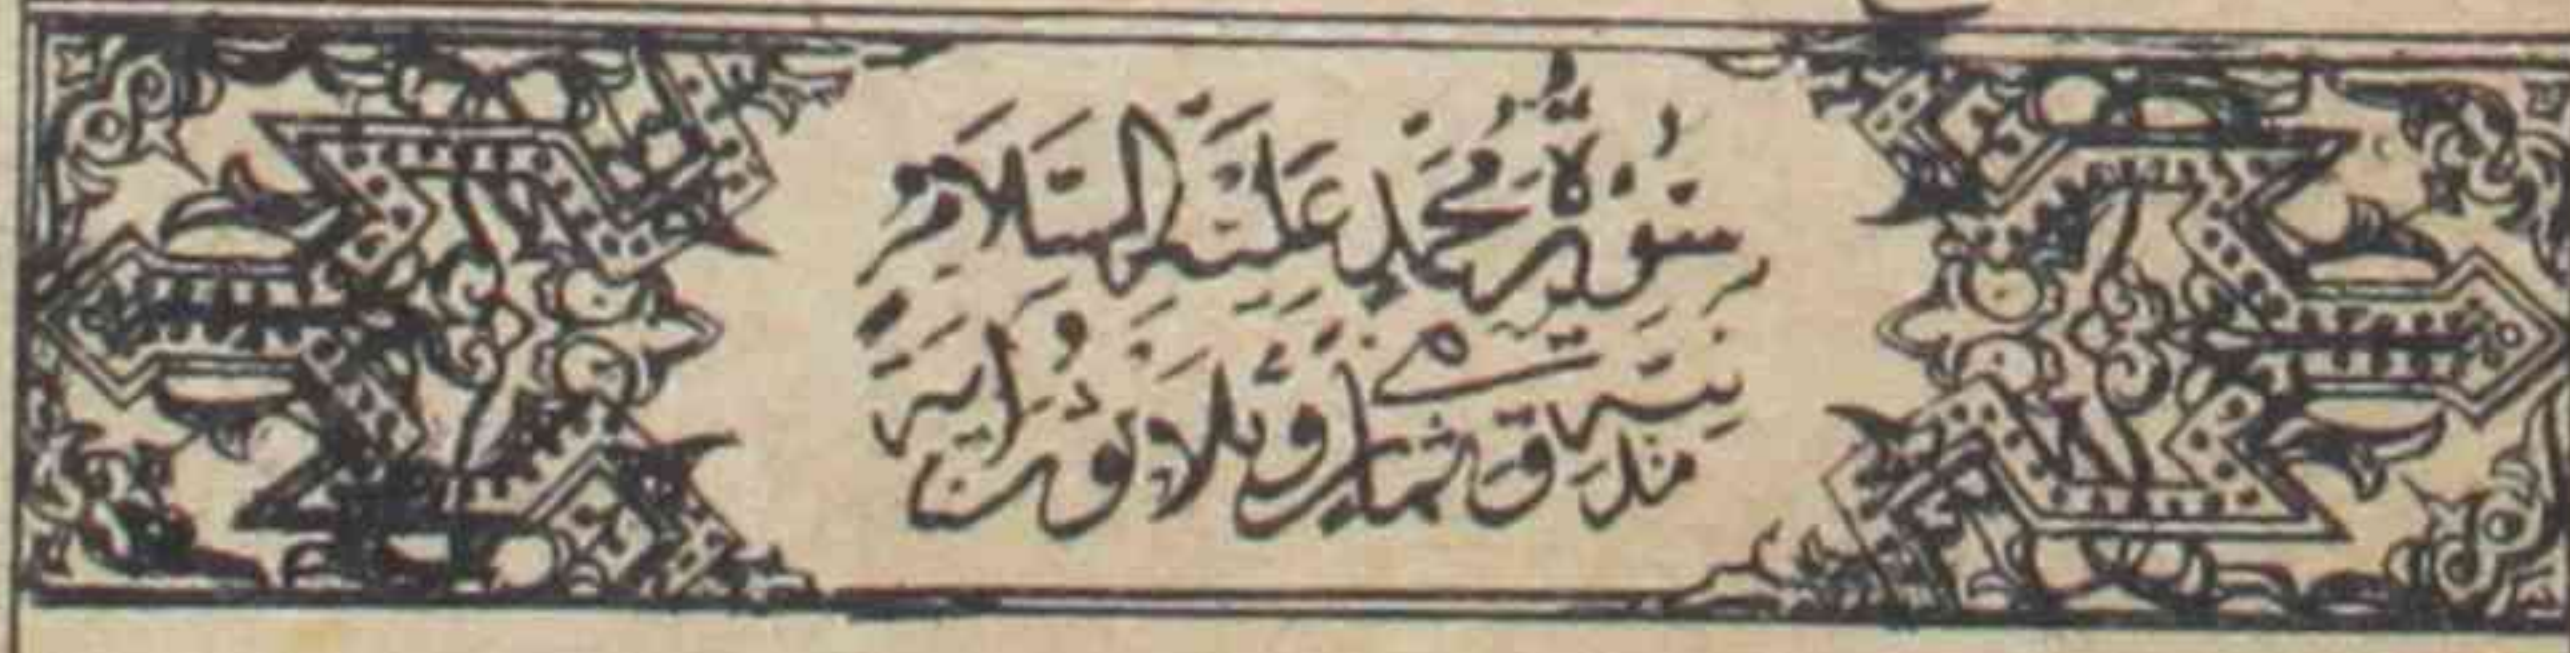 سُوْرَةُ مُحَمَّدٍ عَلَيْهِ السَّلَام
مدنيّة وهي ثمان وَثَلاثُوْنَ اٰيَة